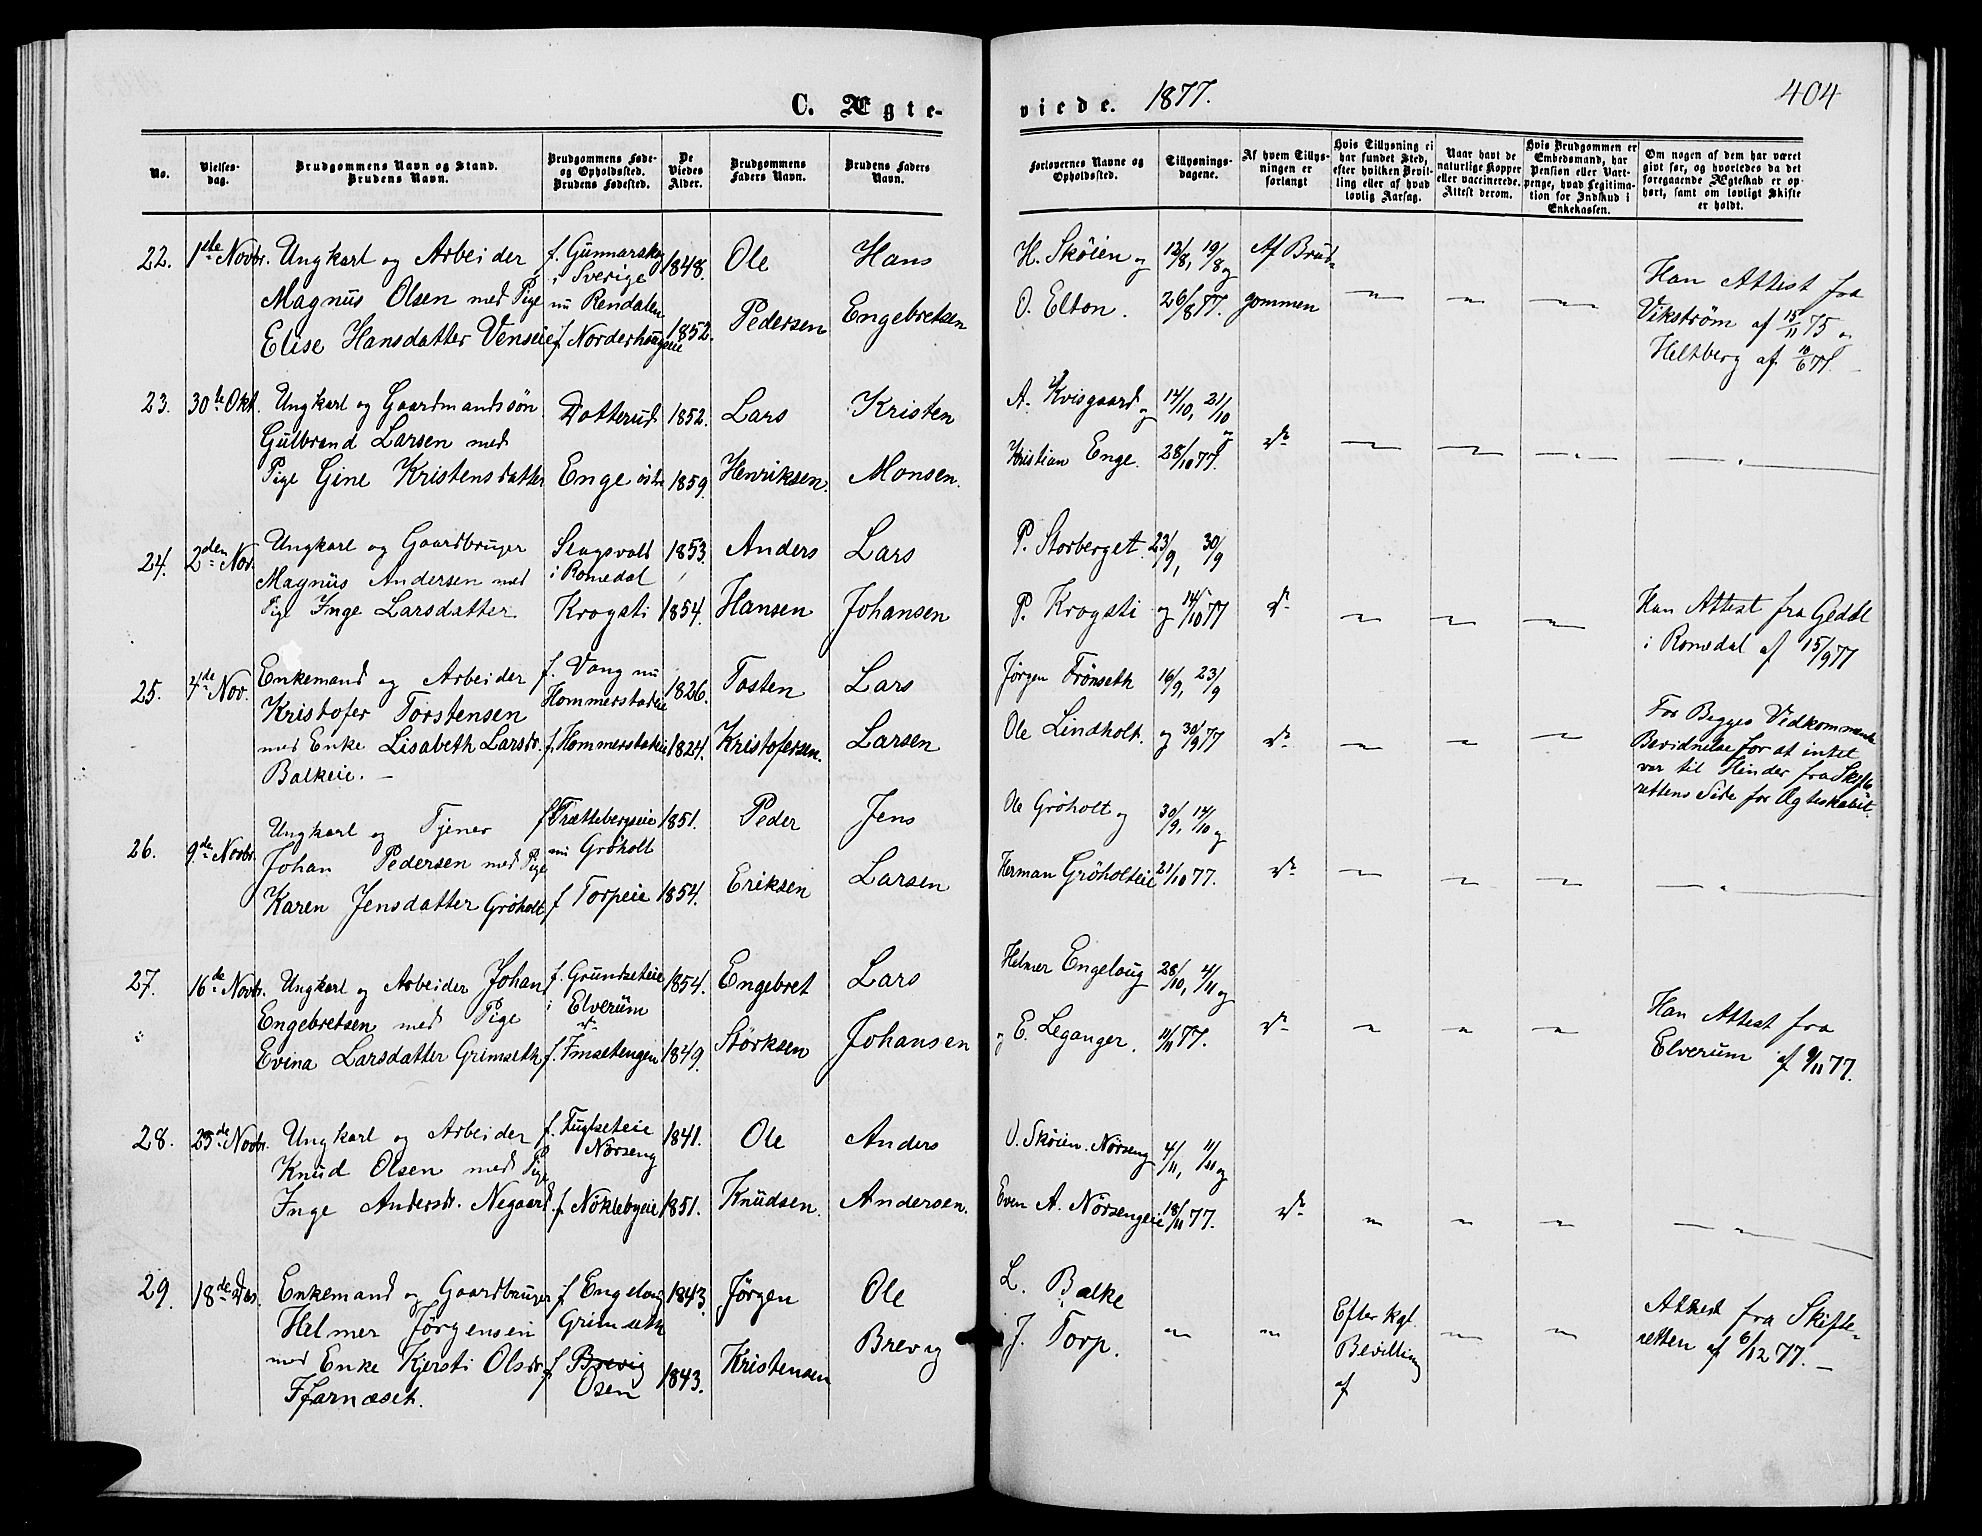 C. Ægte-
viede. 1877.
404
No.
Vielses-
dag.
Brudgommens Navn og Stand.
Brudens Navn.
Brudgommens Føde-
og Opholdssted.
Brudens Fødested.
De
Viedes
Alder.
Brudgommens
Faders Navn.
Brudens Faders
Navn.
Forlovernes Navne og
Opholdssted.
Tillysnings-
dagene.
Af hvem Tillys-
ningen er
forlangt
Hvis Tillysning ei
har fundet Sted,
efter hvilken Bevil-
ling eller af hvad
lovlig Aarsag.
Naar havt de
naturlige Kopper
eller vaccinerede.
Attest derom.
Hvis Brudgommen er
Embedsmand, har
Pension eller Vart-
penge, hvad Legitima-
tion for Indskud i
Enkekassen.
Om nogen af dem har været
givt før, og hvorledes da det
foregaaende Ægteskab er op-
hørt, samt om lovligt Skifte
er holdt.
22. 1ste Novbr. Ungkarl og Arbeider
Magnus Olsen med Pige
Elise Hansdatter Venseie
f. Gunnarskog
i Sverige
nu Rendalen
f. Norderhougeie
1848.
1852.
Ole
Pedersen
Hans
Engebretsen
H. Sköien og
O. Elton.
12/8, 19/8 og
26/8 77.
Af Brud-
gommen
Han Attest fra
Vikström af 15/11 75 og
Heltberg af 10/6 77.
23. 30te Okt. Ungkarl og Gaardmandssön
Gulbrand Larsen med
Pige Gine Kristensdatter
Dotterud
Enge östre
1852.
1859.
Lars
Henriksen.
Kristen
Monsen.
A. Kvisgaard og
Kristian Enge.
14/10, 21/10 og
28/10 77.
do
24. 2den Nov. Ungkarl og Gaardbruger
Magnus Andersen med
Pige Inge Larsdatter
Slagsvold
i Romedal
Krogsti
1853.
1854.
Anders
Hansen
Lars
Johansen
P. Storberget
P. Krogsti
23/9, 30/9
og 14/10 77
do
Han Attest fra
i Romedal af 15/9 77
25. 4de Nov. Enkemand og Arbeider
Kristofer Torstensen
med Enke Lisabeth Larsdr.
Balkeie.
f. Vang nu
Hommerstadeie
f. Hommerstadeie
1826.
1824.
Tosten
Kristofersen.
Lars
Larsen
Jörgen Frönseth
Ole Lindholt.
16/9, 23/9
og 30/9 77
do
For Begges Vidkommende
Bevidnelse for at intet
var til Hinder fra Skifte
rettens Side for Ægteskabet.
26. 9de Novbr. Ungkarl og Tjener
Johan Pedersen med Pige
Karen Jensdatter Gröholt
f. Trættebergseie
nu Gröholt
f Torpeie
1851.
1854.
Peder
Eriksen
Jens
Larsen
Ole Gröholt og
Herman Gröholteie
30/9, 14/10 og
21/10 77.
do
27. 16de Novbr. Ungkarl og Arbeider Johan
Engebretsen med Pige
Evina Larsdatter Grimseth
f. Grundseteie
i Elverum
do
f. Imsetengen
1854.
1849.
Engebret
Störksen
Lars
Johansen
Helmer Engeloug
og E. Leganger.
28/10, 4/11 og
11/11 77.
do
Han Attest fra
Elverum af 9/11 77.
28. 23de Novbr. Ungkarl og Arbeider
Knud Olsen med Pige
Inge Andersdr. Negaard
f. Fugleseteie
Nörseng
f. Nöklebyeie
1841.
1851.
Ole
Knudsen.
Anders
Andersen.
O. Sköien. Nörseng
Even A. Nörsengeie
4/11, 11/11 og
18/11 77.
do
29. 18de Des. Enkemand og Gaardbruger
Helmer Jörgensen
med Enke Kjersti Olsdr.
Fjarnæset.
f Engeloug
Grimseth
f Brevig
Osen
1843.
1843.
Jörgen
Kristensen
Ole
Brevig
L. Balke
J. Torp.
Efter kgl.
Bevilling
af
Attest fra Skifte-
retten af 6/12 77.